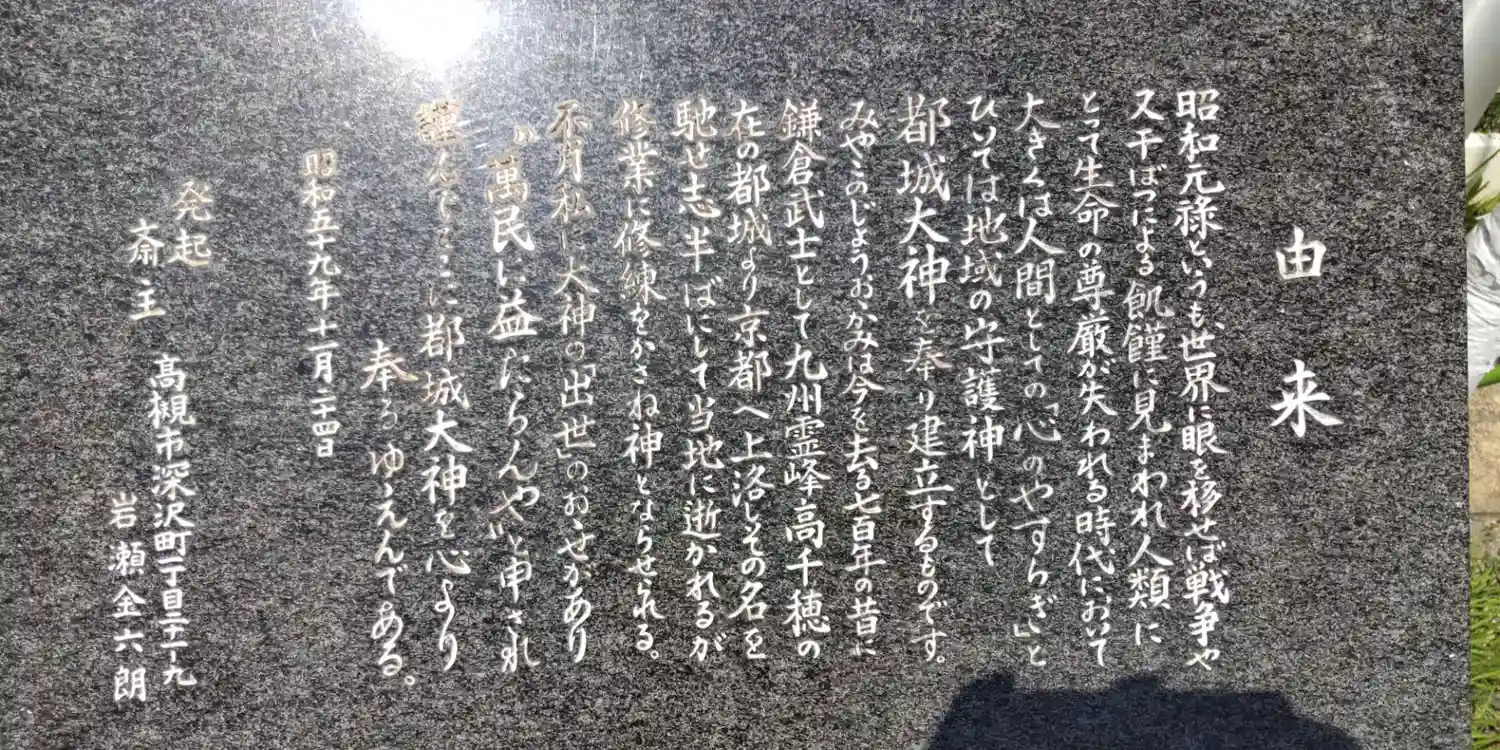 由来
昭和元禄というも、世界に眼を移せば戦争や
又干ばつによる飢饉に見まわれ人類に
とって生命の尊厳が失われる時代において
大きくは人間としての「心」のやすらぎ」と
ひいては地域の守護神として
都城大神を奉り建立するものです。
みやこのじょうおゝかみは今を去る七百年の昔に
鎌倉武士として九州霊峰高千穂の
在の都城より京都へ上洛しその名を
馳せ志半ばにして当地に逝かれるが
修業に修練をかさね神とならせられる。
不肖私に大神の「出世」のおゝせがあり
〃萬民に益たらんや〃と申され
謹んでここに都城大神を心より
奉るゆえんである。
昭和五十九年十一月二十四日
発起
斎主
高槻市深沢町一丁目二十ー九
岩瀬金六朗